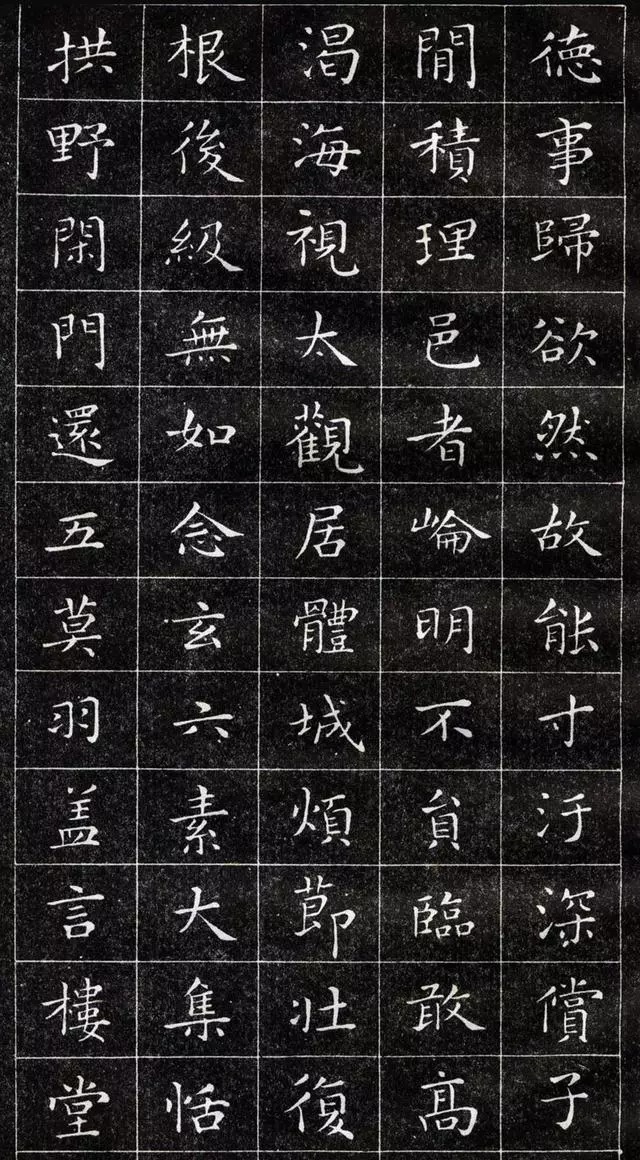 徳事歸欲然故能寸汙深償子
閒積理邑者崘明不貟臨敢髙
渴海視太觀居體城煩莭壯復
根後級無如念玄六素大集恬
拱野閑門還五莫羽盖言樓堂